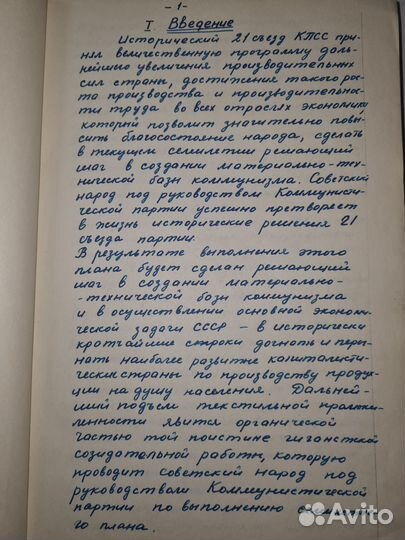 - 1 -
I. Введение
Исторический 21 съезд КПСС при-
нял величественную программу даль-
нейшего увеличения производительных
сил страны, достижения такого рос-
та производства и производительнос-
ти труда во всех отраслях экономики
который позволит значительно повы-
сить благосостояние народа, сделать
в текущем семилетии решающий
шаг в создании материально-тех-
нической базы коммунизма. Советский
народ под руководством Коммунисти-
ческой партии успешно претворяет
в жизнь исторические решения 21
съезда партии.
В результате выполнения этого
плана будет сделан решающий
шаг в создании материально-
-технической базы коммунизма
и в осуществлении основной экономи-
ческой задачи СССР – в исторически
кротчайшие строки догнать и перег-
нать наиболее развитые капиталисти-
ческие страны по производству продук-
ции на душу населения. Дальней-
ший подъем текстильной промыш-
ленности явится органической
частью той поистине гигантской
созидательной работы, которую
проводит советский народ под
руководством Коммунистической
партии по выполнению
го плана.
Avito